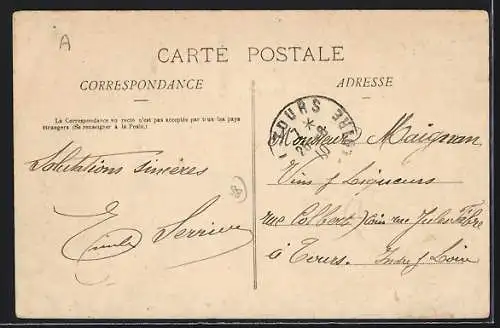 A
CARTE POSTALE
CORRESPONDANCE
ADRESSE
La Correspondance au recto n'est pas acceptée par tous les pays
étrangers (Se renseigner à la Poste.)
TOURS GARE
Monsieur Maignan
Vins & Liqueurs
rue Colbert, Coin rue Jules Fabre
à Tours. Indre & Loire
Salutations sincères
Emile